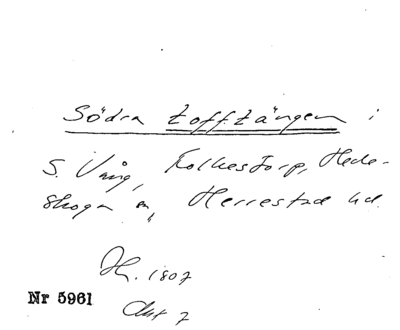 Södra tofftängen i
S. Vång, Folkestorp, Hede-
skoga sn, Herrestad hd.
H. 1807
Nr 5961
Akt 7